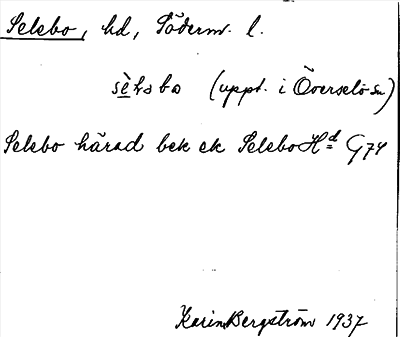 Selebo, hd, Söderm. l.
sèḷəbɷ (uppt. i Överselö sn)
Selebo härad bek ek Selebo Hd G74
Karin Bergström 1937